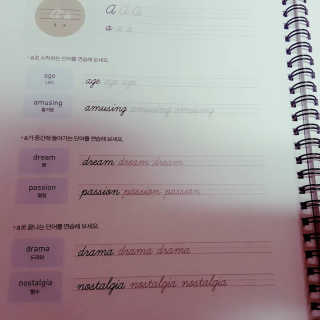 A A A
a a a
• a로 시작하는 단어를 연습해 보세요.
age age age age
나이
amusing amusing amusing amusing
즐거운
• a가 중간에 들어가는 단어를 연습해 보세요.
dream dream dream dream
꿈
passion passion passion passion
열정
• a로 끝나는 단어를 연습해 보세요.
drama drama drama drama
드라마
nostalgia nostalgia nostalgia nostalgia
향수